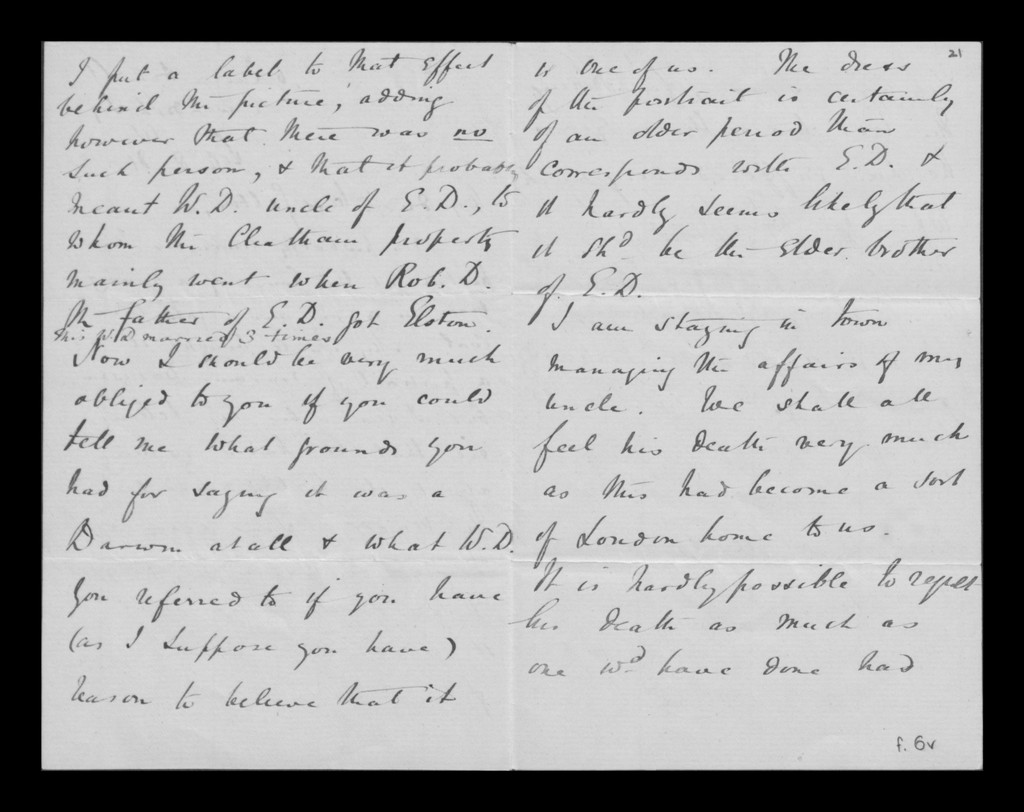 I put a label to that effect
behind the picture, adding
however that there was no
such person, & that it probably
meant W.D. uncle of E.D., to
whom the Cleatham property
mainly went when Rob. D.
the father of E.D. got Elston.
this W.D married 3 times
Now I should be very much
obliged to you if you could
tell me what grounds you
had for saying it was a
Darwin at all & what W.D.
you referred to if you have
(as I suppose you have)
reason to believe that it
21
is one of us. The dress
of the portrait is certainly
of an older period than
corresponds with E.D. &
it hardly seems likely that
it shd. be the elder brother
of E.D.
I am staying in town
managing the affairs of my
uncle. We shall all
feel his death very much
as this had become a sort
of London home to us.
It is hardly possible to regret
his death as much as
one wd. have done had
f. 6v